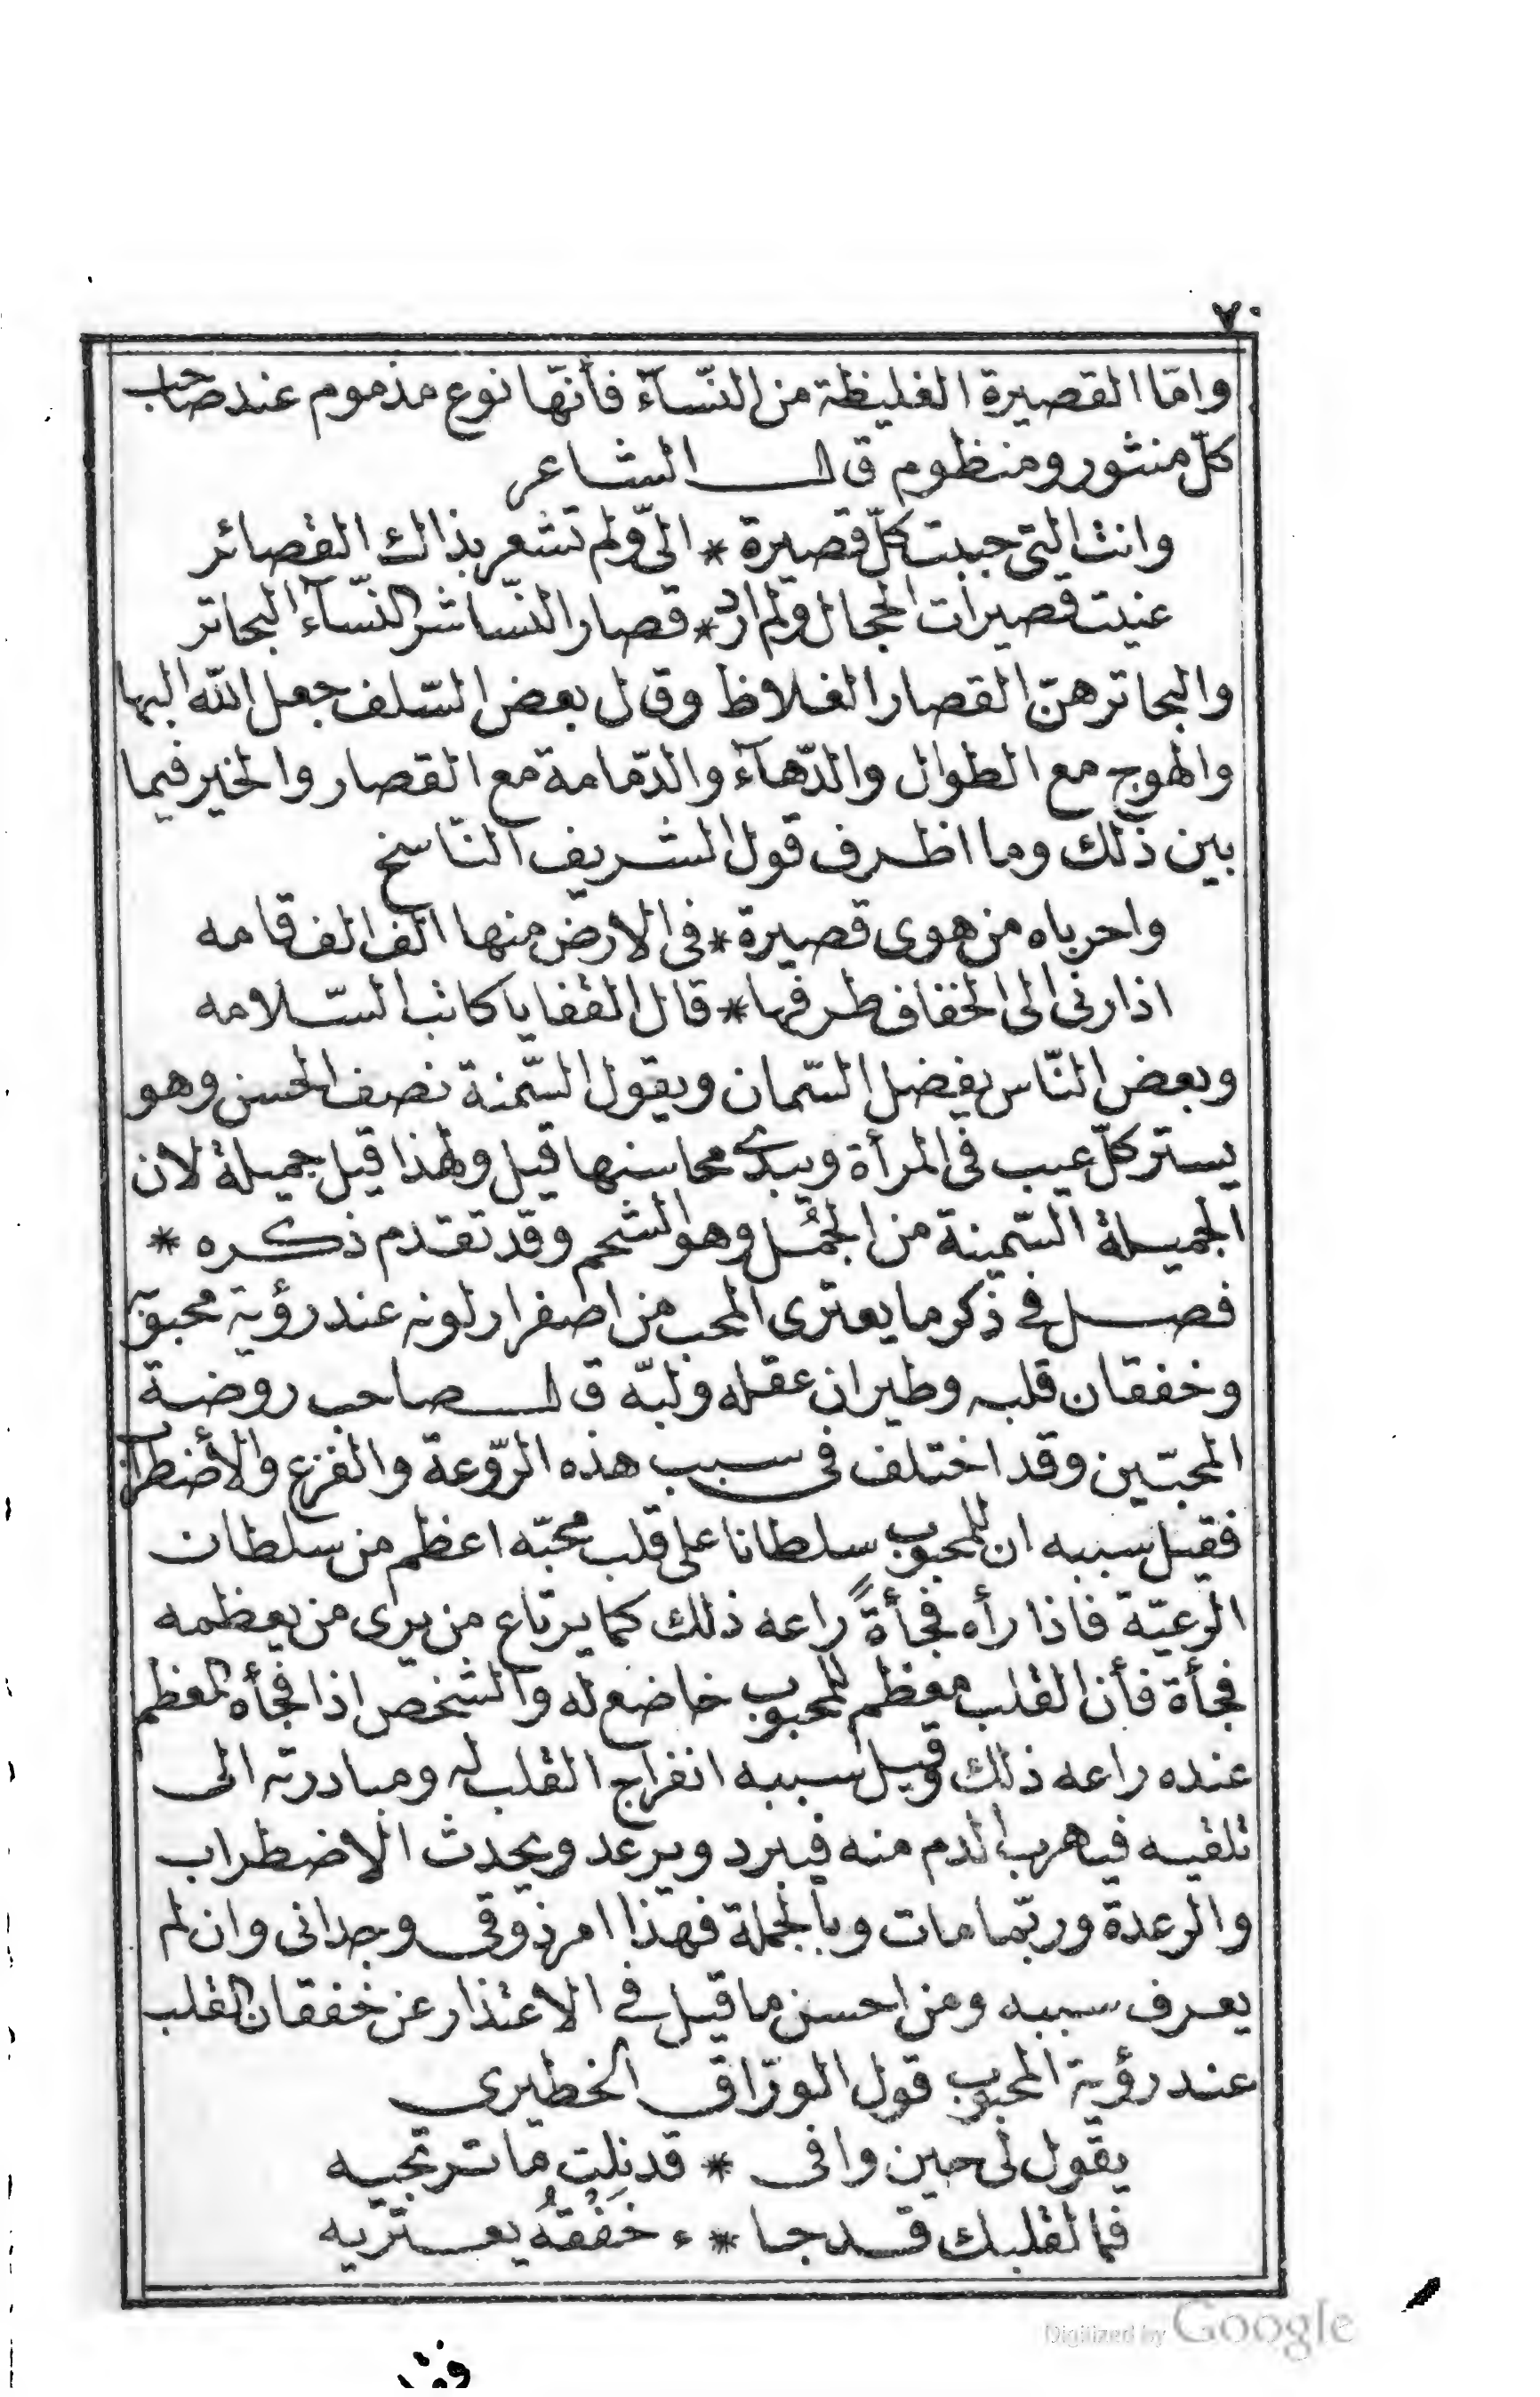 ٧٠
وامّا القصيرة الغليظة من النّسآء فأنّها نوع مذموم عند صاحب
كلّ منثور ومنظوم قال الشاعر
وانت التى حببت كلّ قصيرة * الىّ ولم تشعر بذاك القصائر
عنيت قصيرات الحجال ولم ارد * قصار النّسا شر النّسآء البحاتر
والبحاتر هنّ القصار الغلاظ وقال بعض السّلف جعل الله البها
والهوج مع الطوال والدّهآء والدّمامة مع القصار والخير فيما
بين ذلك وما اظرف قول الشريف النّاسخ
واحرباه من هوى قصيرة * فى الارض منها الف الف قامه
اذا رنى الى الخفاف طرفها * قال القفا يا كاتب السّلامه
وبعض النّاس يفضل السّمان ويقول السّمنة نصف الحسن وهو
يستر كلّ عيب فى المرأة ويبدى محاسنها قيل ولهذا قيل جميلة لان
الجميلة السّمينة من الجُمُل وهو الشحم وقد تقدم ذكره *
فصل فى ذكر ما يعترى المحب من اصفرار لونه عند رؤية محبوبه
وخفقان قلبه وطيران عقله ولبّه قال صاحب روضة
المحبّين وقد اختلف فى سبب هذه الرّوعة والفزع والأضطراب
فقيل سببه ان للمحبوب سلطانا على قلب محبّه اعظم من سلطان
الرعيّة فاذا رأه فجأةً راعه ذلك كما يرتاع من يرى من يعظمه
فجأة فأن القلب معظم للمحبوب خاضع له والشخص اذا فجأه المعظم
عنده راعه ذلك وقيل سببه انفراج القلب له ومبادرته الى
تلقيه فيهرب الدم منه فيبرد ويرعد ويحدث الاضطراب
والرعدة وربّما مات وبالجملة فهذا امر ذوقى وجدانى وان لم
يعرف سببه ومن احسن ما قيل فى الاعتذار عن خفقان القلب
عند رؤية المحبوب قول الورّاق الخطيرى
يقول لى حين وافى * قد نِلتَ ما ترتجيه
فما لقلبك قد جا * ء خَفْقهُ يعتريه
Digitized by Google